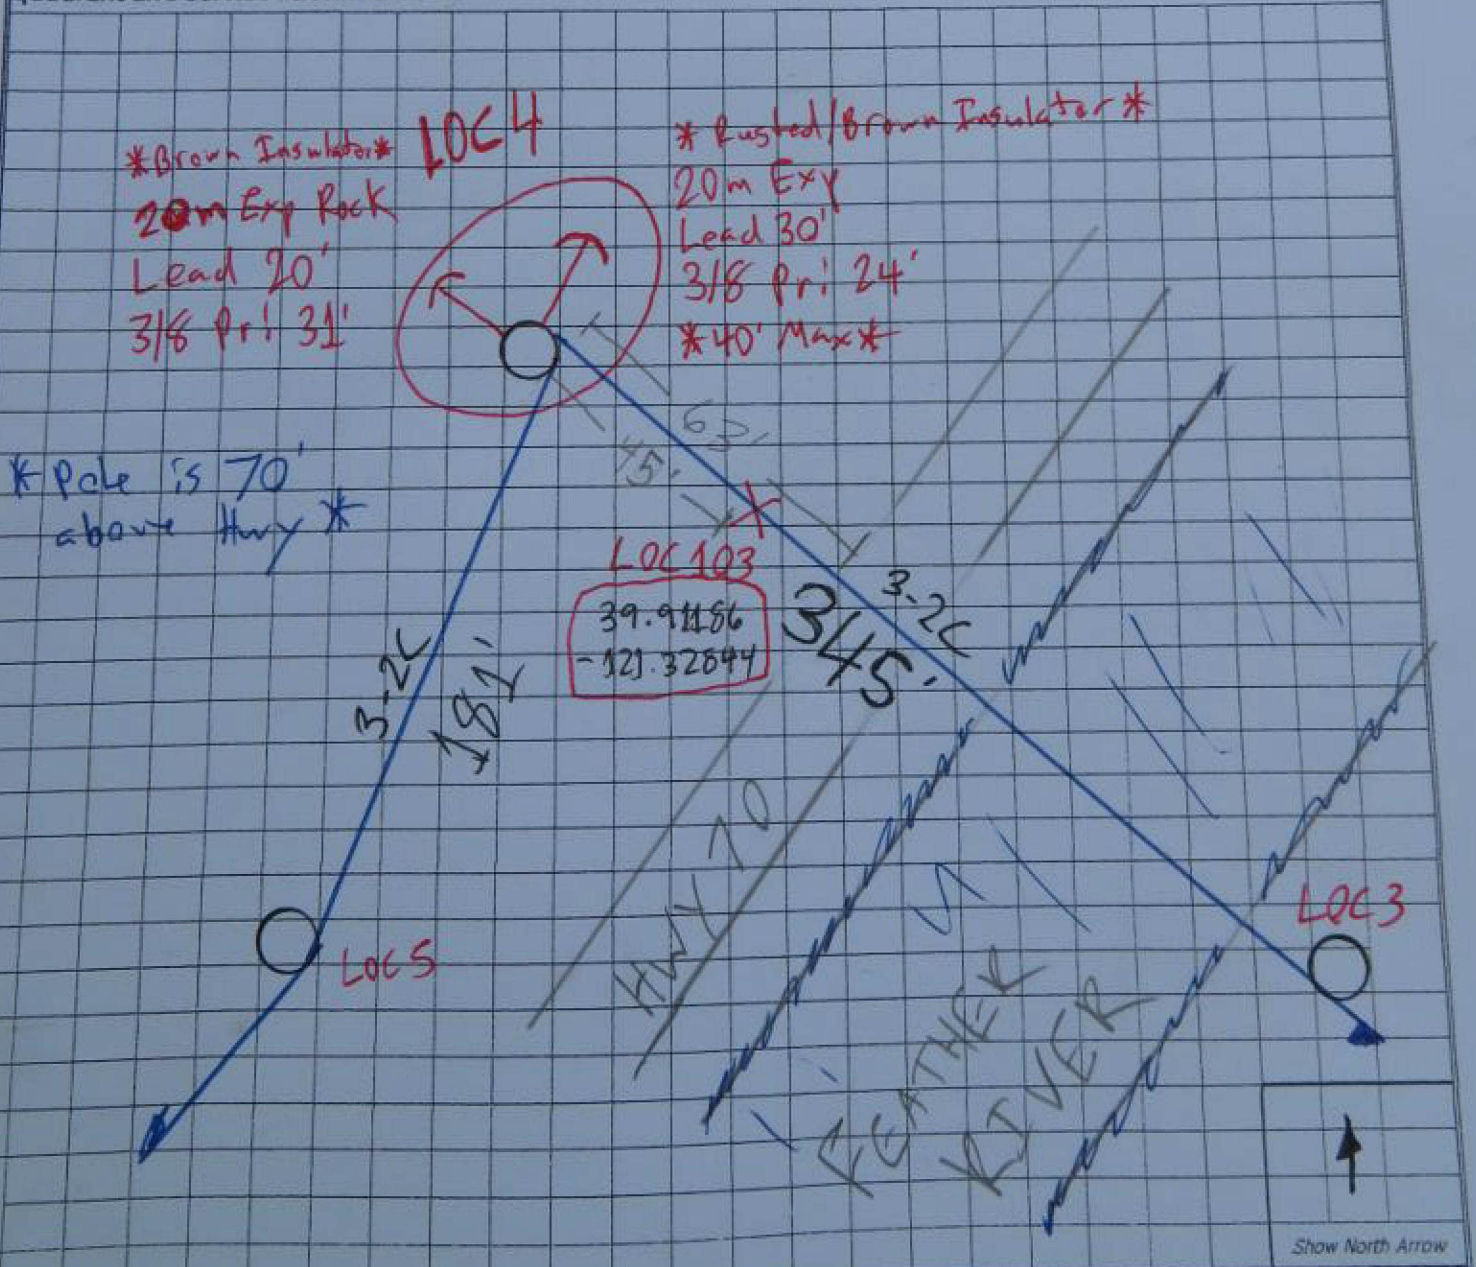 LOC4
*Brown Insulator*
20m Exp Rock
Lead 20'
3/8 Pri 31'
*Rusted/Brown Insulator*
20m Exp
Lead 30'
3/8 Pri 24'
*40' Max*
*Pole is 70'
above Hwy*
63'
45'
LOC103
39.91186
-121.32844
3-2C
345'
3-2C
181'
HWY 70
LOC5
LOC3
FEATHER
RIVER
Show North Arrow